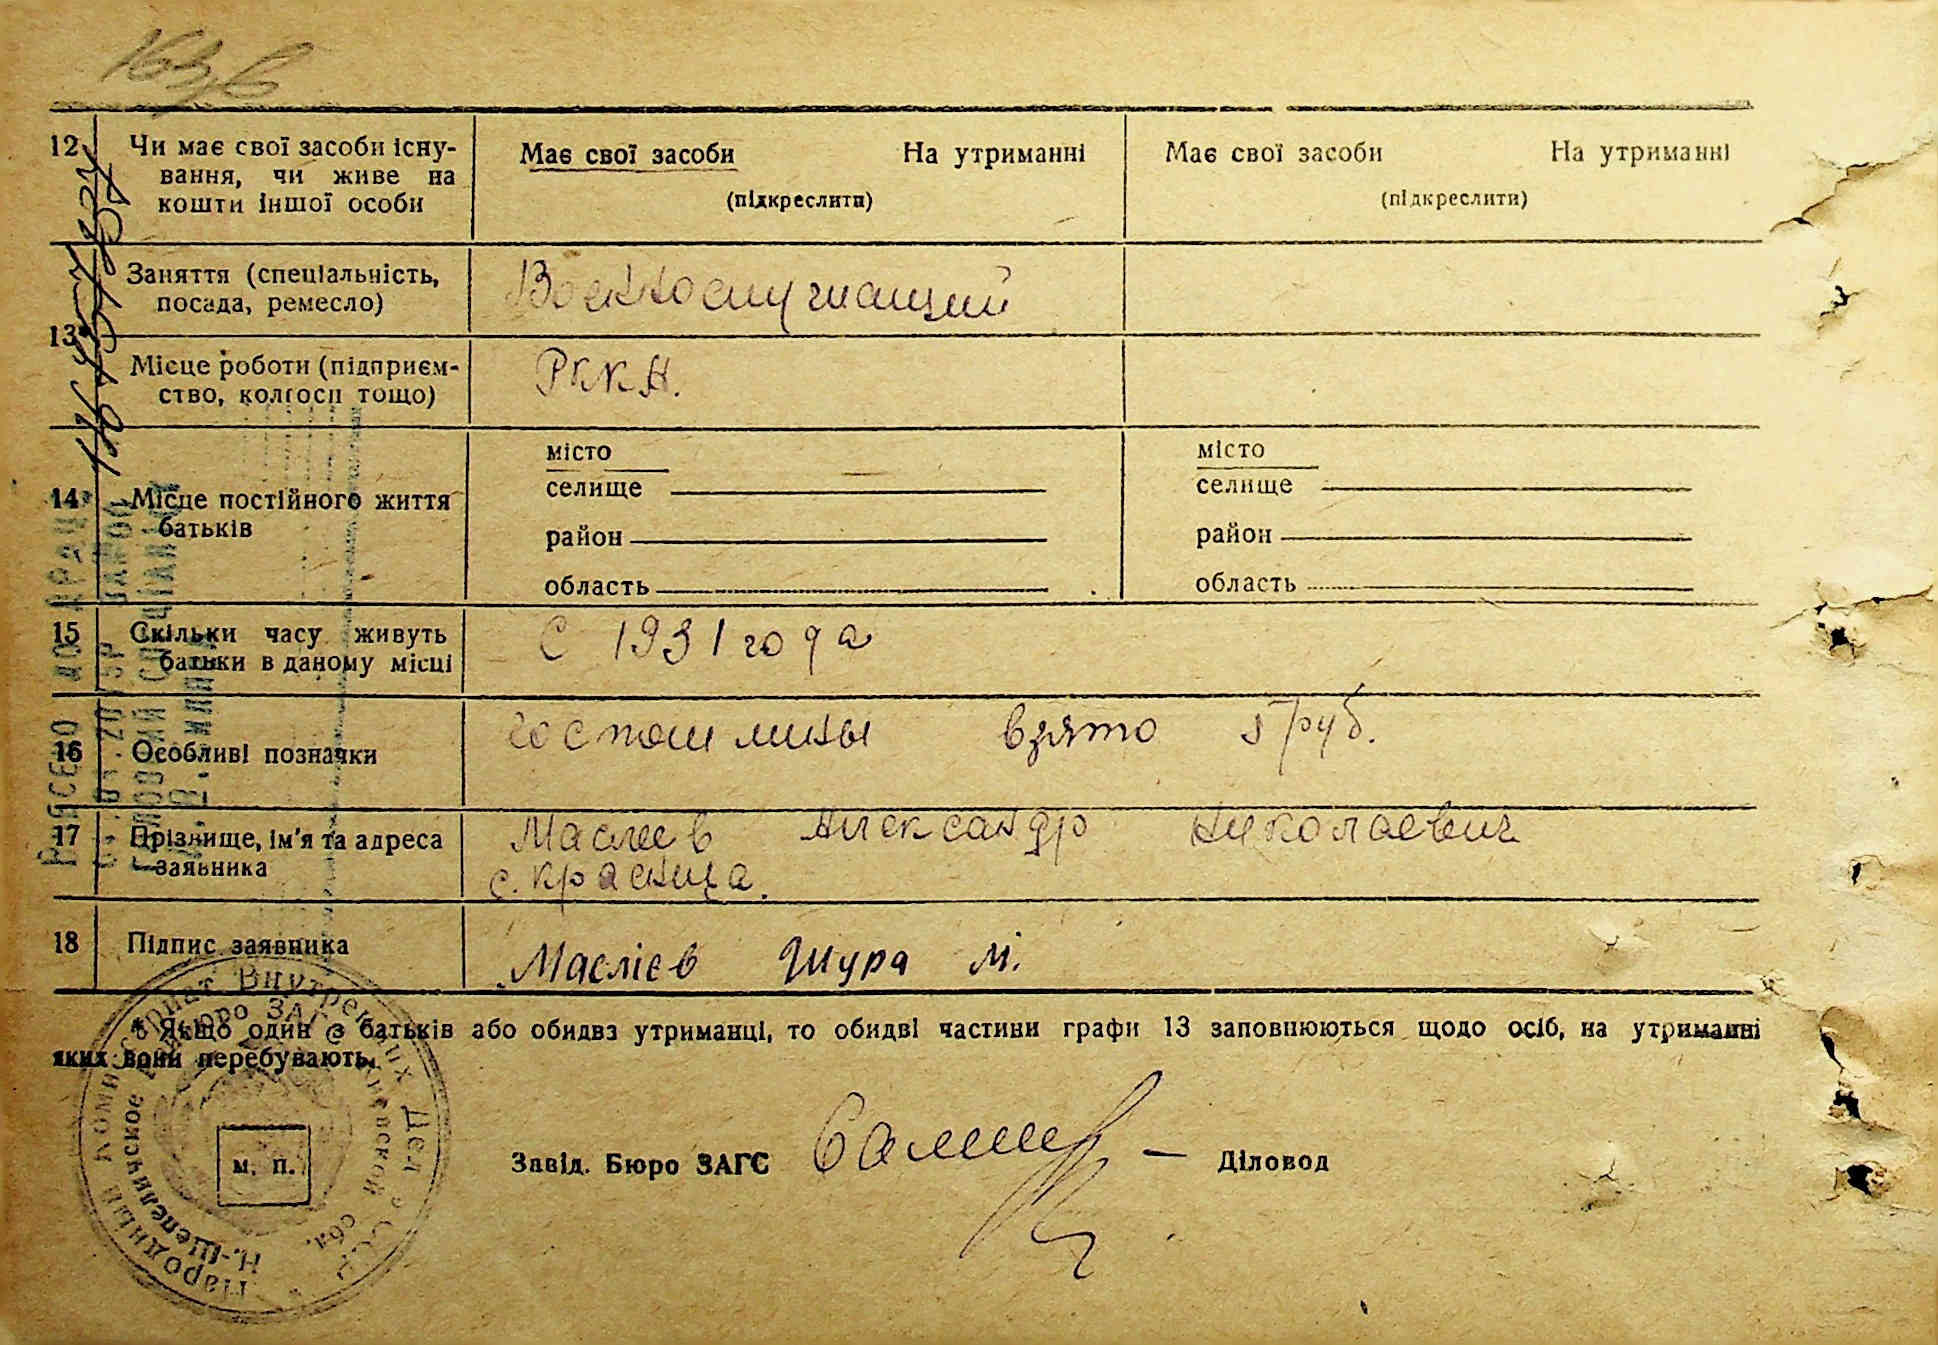 12 Чи має свої засоби існу-
вання, чи живе на
кошти іншої особи
Має свої засоби На утриманні
(підкреслити)
Має свої засоби На утриманні
(підкреслити)
13*
Заняття (спеціальність,
посада, ремесло)
Военнослужащий
Місце роботи (підприєм-
ство, колгосп тощо)
РККА.
14 Місце постійного життя
батьків
місто
селище
район
область
місто
селище
район
область
15 Скільки часу живуть
батьки в даному місці
С 1931 года
16 Особливі позначки
госпошлины взято 5 руб.
17 Прізвище, ім'я та адреса
заявника
Маслеев Александр Николаевич
с. красница.
18 Підпис заявника
Маслієв Шура М.
* Якщо один з батьків або обидва утриманці, то обидві частини графи 13 заповнюються щодо осіб, на утриманні
яких вони перебувають.
Завід. Бюро ЗАГС
Діловод
м. п.
Народный Комиссариат Внутренних Дел УССР
Н.-Шепеличское Бюро ЗАГС Киевской обл.